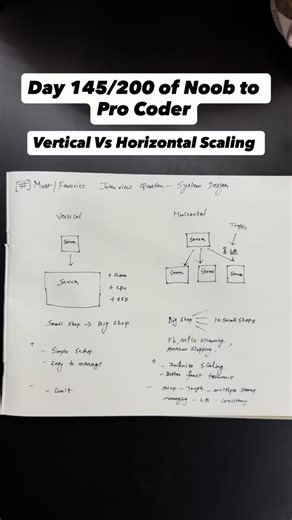 Day 145/200 of Noob to
Pro Coder
Vertical Vs Horizontal Scaling
[#] Must/Favorite Interview Question - System Design
Vertical
Server
Server
+ RAM
+ CPU
+ SSD
Small Shop → Big Shop
+
- Simple Setup
- Easy to manage
-
- Limit
Horizontal
Traffic
Server
LB
Server
Server
Server
Big Shop
10 Small Shops
Fb, Netflix streaming,
Amazon Shopping.
+
- Infinite Scaling
- Better fault tolerance
-
- Setup - Tough - multiple servers
managing - LB - consistency